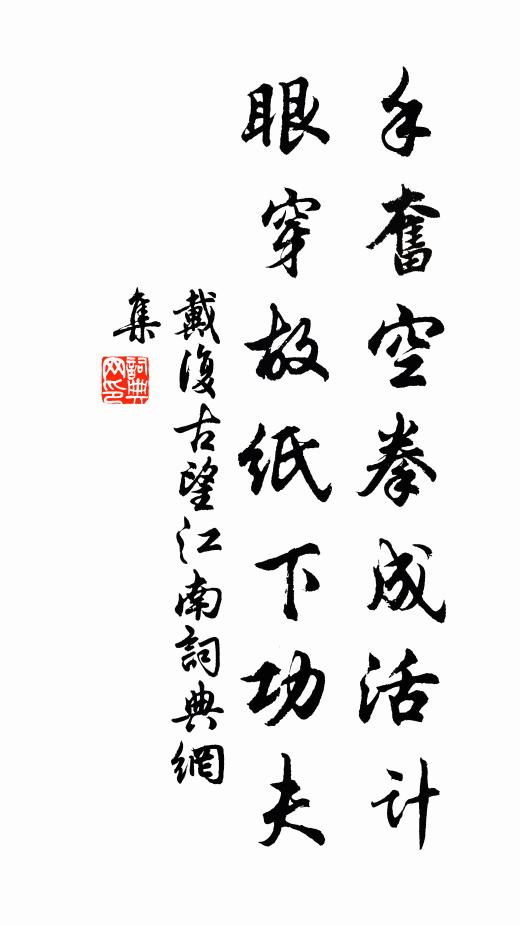 手奮空拳成活計
眼穿故紙下功夫
戴復古望江南詞典網
集
詞典
网印